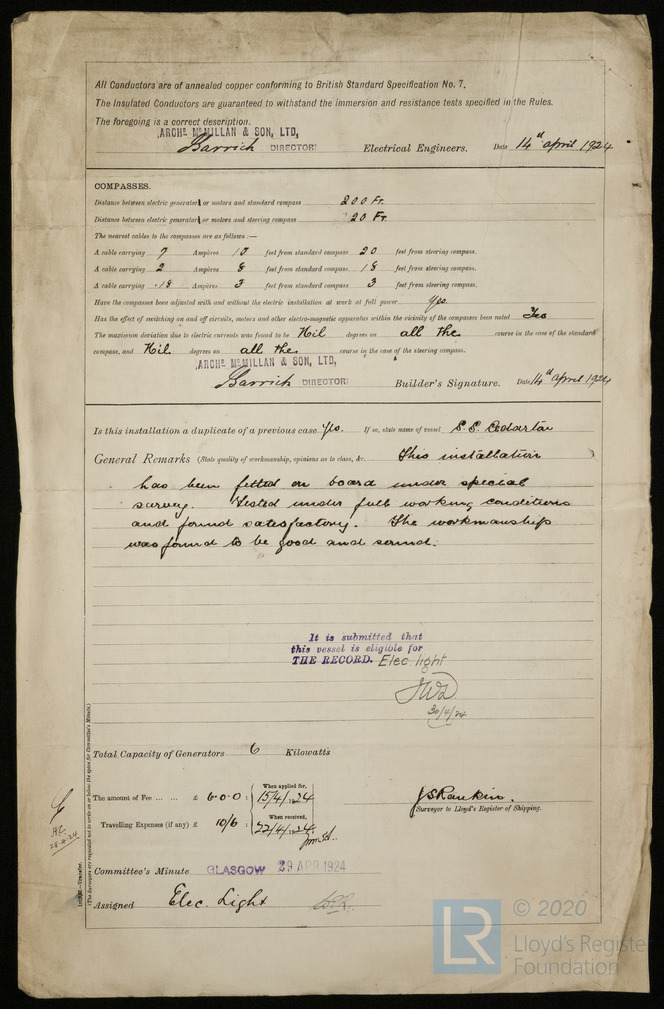 All Conductors are of annealed copper conforming to British Standard Specification No. 7.
The Insulated Conductors are guaranteed to withstand the immersion and resistance tests specified in the Rules.
The foregoing is a correct description.
ARCHD. McMILLAN & SON, LTD,
DIRECTOR Electrical Engineers. Date 14th April 1924
COMPASSES.
Distance between electric generator or motors and standard compass 200 Ft.
Distance between electric generator or motors and steering compass 20 Ft.
The nearest cables to the compasses are as follows :—
A cable carrying 7 Ampères 10 feet from standard compass 20 feet from steering compass.
A cable carrying 2 Ampères 8 feet from standard compass 18 feet from steering compass.
A cable carrying .18 Ampères 3 feet from standard compass 3 feet from steering compass.
Have the compasses been adjusted with and without the electric installation at work at full power yes
Has the effect of switching on and off circuits, motors and other electro-magnetic apparatus within the vicinity of the compasses been noted Yes
The maximum deviation due to electric currents was found to be Nil degrees on all the course in the case of the standard
compass, and Nil. degrees on all the course in the case of the steering compass.
ARCHD. McMILLAN & SON, LTD,
DIRECTOR Builder's Signature. Date 14th April 1924
Is this installation a duplicate of a previous case Yes. If so, state name of vessel S.S. Cedartor
General Remarks (State quality of workmanship, opinions as to class, &c. This installation
has been fitted on board under special
survey. Tested under full working conditions
and found satisfactory. The workmanship
was found to be good and sound.
It is submitted that
this vessel is eligible for
THE RECORD. Elec light
30/4/24
Total Capacity of Generators 6 Kilowatts
The amount of Fee ... ... £ 6.0.0 : When applied for, 15/4/24
Travelling Expenses (if any) £ 10/6 : When received, 22/4/24
J S Rankin.
Surveyor to Lloyd's Register of Shipping.
28.4.24
Committee's Minute GLASGOW 29 APR 1924
Assigned Elec. Light
(The Surveyors are requested not to write on or below the space for Committee's Minute.)
© 2020
LR
Lloyd's Register
Foundation